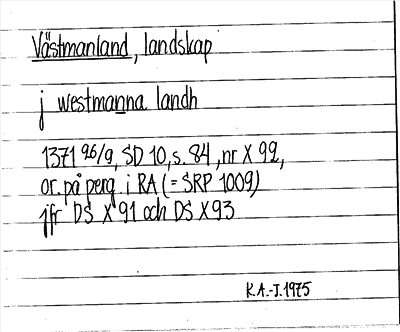 Västmanland, landskap
j westmanna landh
1371 26/9, SD 10, s. 84, nr X 92,
or. på perg. i RA (= SRP 1009)
jfr DS X 91 och DS X 93
K.A.-J. 1975